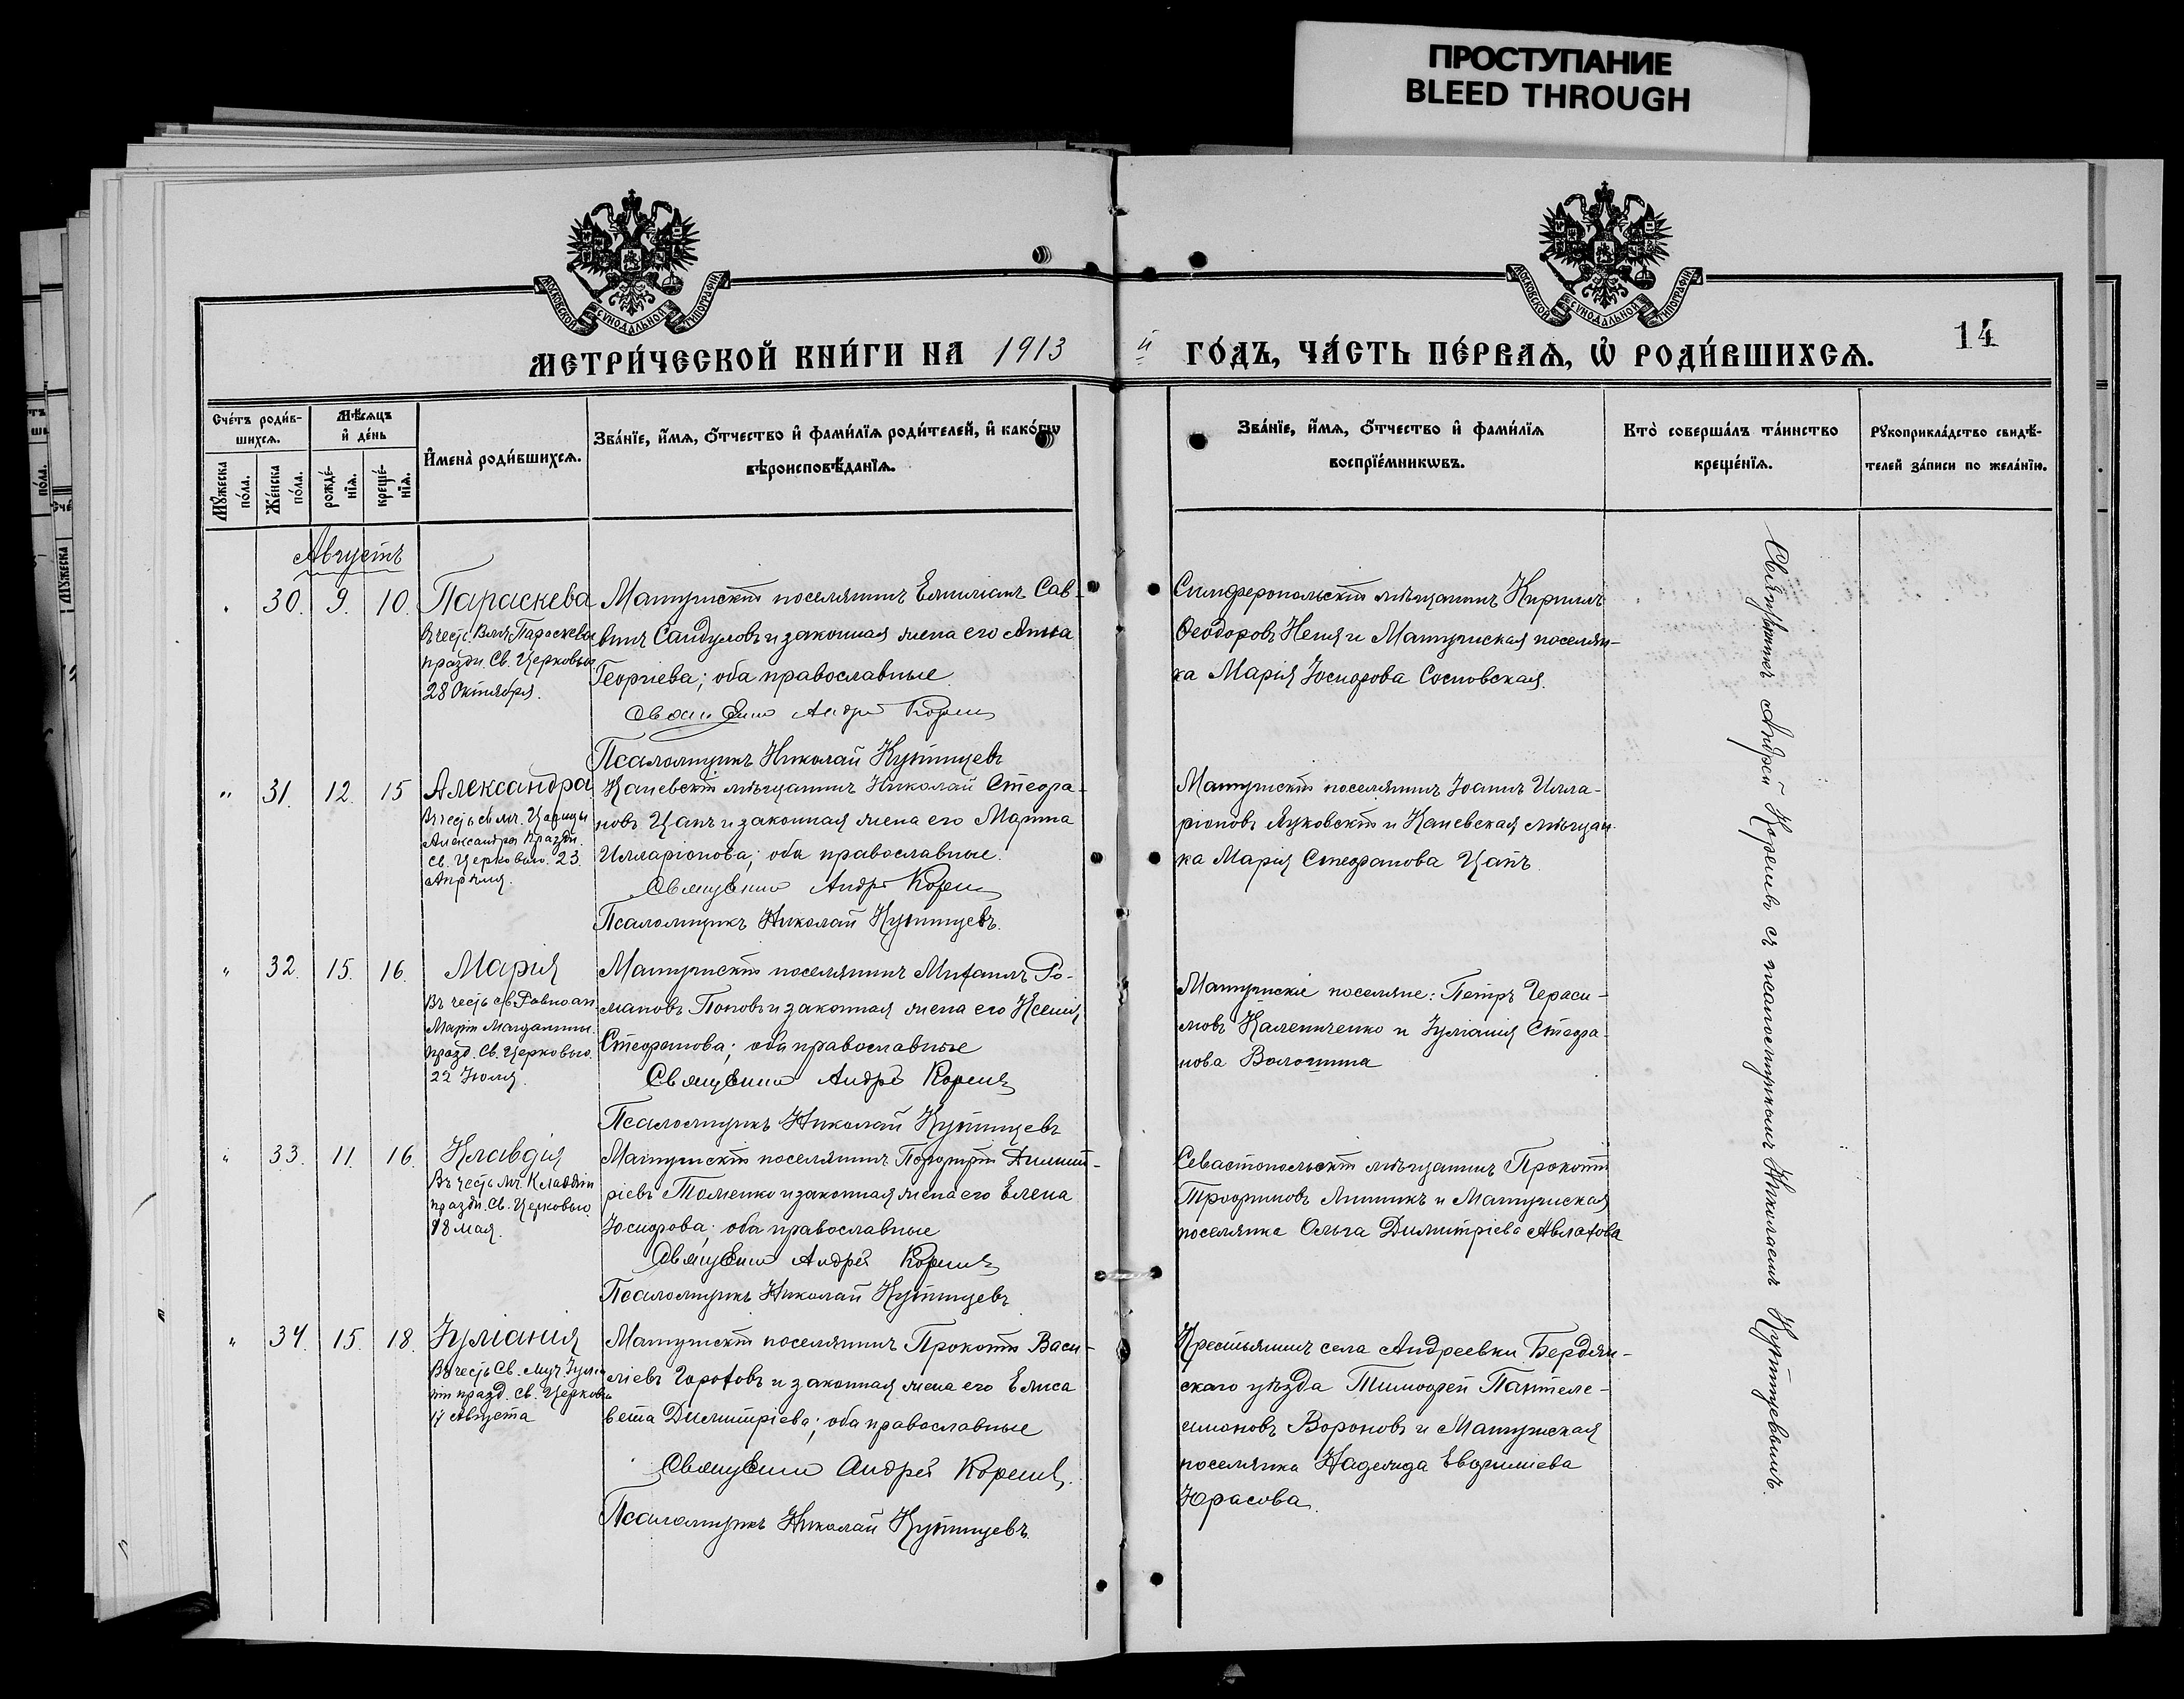 ПРОСТУПАНИЕ
BLEED THROUGH
МОСКОВСКОЙ СУНОДАЛЬНОЙ ТИПОГРАФІИ
МОСКОВСКОЙ СУНОДАЛЬНОЙ ТИПОГРАФІИ
14
МЕТРИ́ЧЕСКОЙ КНИ́ГИ НА 1913 й ГО́ДЪ, ЧА́СТЬ ПЕ́РВАѦ, Ѡ РОДИ́ВШИХСѦ.
Сче́тъ роди́в-
шихсѧ.
Му́жеска по́ла.
Же́нска по́ла.
Мѣ́сѧцъ
и де́нь
рожде́-
нїѧ.
креще́-
нїѧ.
Имена̀ роди́вшихсѧ.
Зва́нїе, и́мѧ, ѻ́тчество и фами́лїѧ роди́телей, и како́гѡ
вѣроисповѣ́данїѧ.
Зва́нїе, и́мѧ, ѻ́тчество и фами́лїѧ
воспрїе́мникѡвъ.
Кто̀ соверша́лъ та́инство
креще́нїѧ.
Рꙋкоприкла́дство свидѣ́-
телей за́писи по жела́нїю.
Августъ
" 30. 9. 10. Параскева
Въ честь Влмч Параскевы
праздн. Св. Церковью
28 Октября.
Мангушскій поселянинъ Емиліанъ Сав-
винъ Сандуловъ и законная жена его Анна
Георгіева; оба православные.
Священникъ Андрей
Псаломщикъ Николай Купитцевъ
Симферопольскій мѣщанинъ Кириллъ
Ѳеодоровъ Неня и Мангушская поселян-
ка Марія Іосифова Сосновская.
" 31. 12. 15 Александра
Въ честь св. мч. Царицы
Александры праздн.
св. Церковью. 23.
Апрѣля.
Каневскій мѣщанинъ Николай Стефа-
новъ Цапъ и законная жена его Марина
Илларіонова; оба православные.
Священникъ Андрей
Псаломщикъ Николай Купитцевъ.
Мангушскій поселянинъ Іоаннъ Илла-
ріоновъ Жуковскій и Каневская мѣщан-
ка Марія Стефанова Цапъ.
" 32. 15. 16. Марія
Въ честь св. Равноап
Маріи Магдалины.
празд. Св. Церковью.
22 Іюля.
Мангушскій поселянинъ Михаилъ Ро-
мановъ Поповъ и законная жена его Ксенія
Стефанова; оба православные
Священникъ Андрей
Псаломщикъ Николай Купитцевъ
Мангушскіе поселяне: Петръ Гераси-
мовъ Калениченко и Іуліанія Стефа-
нова Волошина
" 33. 11. 16. Клавдія
Въ честь мч. Клавдіи
праздн. Св. Церковью.
18 мая.
Мангушскій поселянинъ Порфирій Димит-
ріевъ Томенко и законная жена его Елена
Іосифова; оба православные
Священникъ Андрей
Псаломщикъ Николай Купитцевъ
Севастопольскій мѣщанинъ Прокопій
Трофимовъ Линникъ и Мангушская
поселянка Ольга Димитріева Авлахова
" 34. 15. 18. Іуліанія
Въ честь Св. муч. Іуліа
ніи празд. св. Церковью
17 Августа
Мангушскій поселянинъ Прокопій Васи-
ліевъ Гороховъ и законная жена его Елиса
вета Димитріева; оба православные
Священникъ Андрей
Псаломщикъ Николай Купитцевъ.
Крестьянинъ села Андреевки Бердян-
скаго уѣзда Тимоѳей Пантеле-
имоновъ Вороновъ и Мангушская
поселянка Надежда Евфиміева
Юрасова.
Священникъ Андрей съ псаломщикомъ Николаемъ Купитцевымъ.